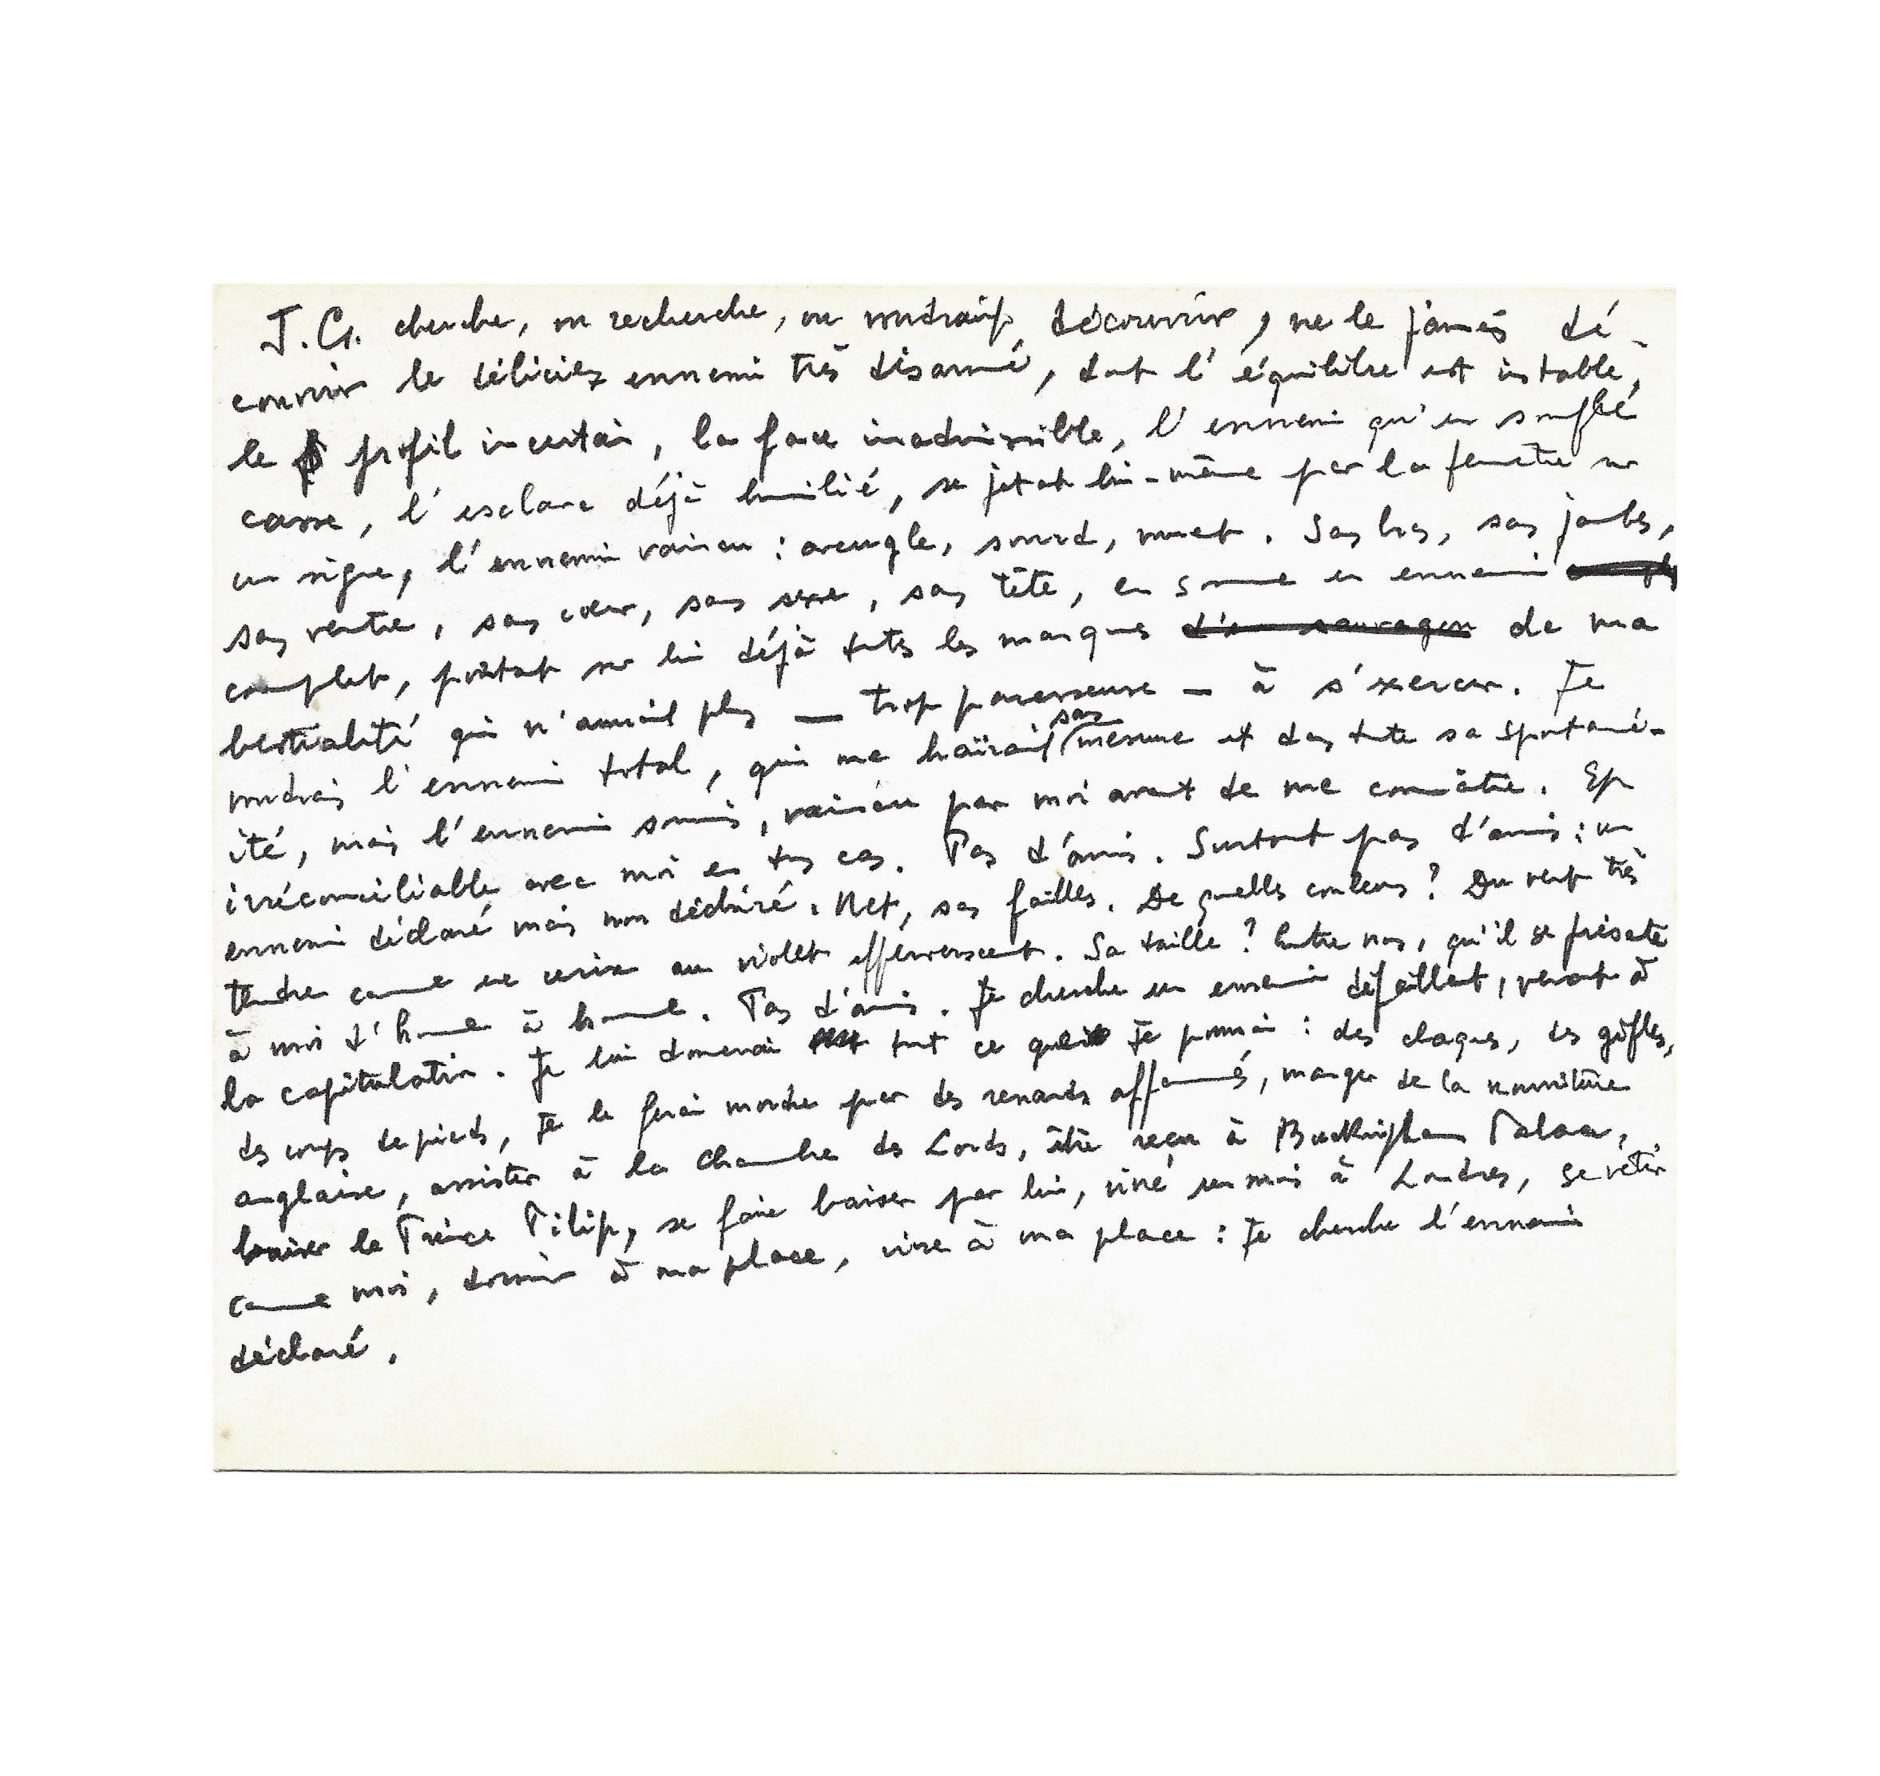 J.G. cherche, ou recherche, ou voudrait découvrir, ne le jamais dé-
couvrir le délicieux ennemi très désarmé, dont l'équilibre est instable,
le profil incertain, la face inadmissible, l'ennemi qu'un souffle
casse, l'esclave déjà humilié, se jetant lui-même par la fenêtre sur
un signe, l'ennemi vaincu : aveugle, sourd, muet. Sans bras, sans jambes,
sans ventre, sans cœur, sans sexe, sans tête, en somme un ennemi
complet, portant sur lui déjà toutes les marques d'un sauvageon de ma
bestialité qui n'aurait plus — trop paresseuse — à s'exercer. Je
voudrais l'ennemi total, qui me haïrait sans mesure et dans toute sa spontané-
ité, mais l'ennemi soumis, vaincu par moi avant de me connaître. Et
irréconciliable avec moi en tous cas. Pas d'amis. Surtout pas d'amis : un
ennemi déclaré mais non déchiré. Net, sans failles. De quelles couleurs ? Du vert très
tendre comme une cerise au violet effervescent. Sa taille ? Entre nous, qu'il se présente
à moi d'homme à homme. Pas d'amis. Je cherche un ennemi défaillant, venant à
la capitulation. Je lui donnerai tout ce que je pourrai : des claques, des gifles,
des coups de pieds, je le ferai mordre par des renards affamés, manger de la nourriture
anglaise, assister à la Chambre des Lords, être reçu à Buckingham Palace,
baiser le Prince Filip, se faire baiser par lui, vivre un mois à Londres, se vêtir
comme moi, dormir à ma place, vivre à ma place : Je cherche l'ennemi
déclaré.